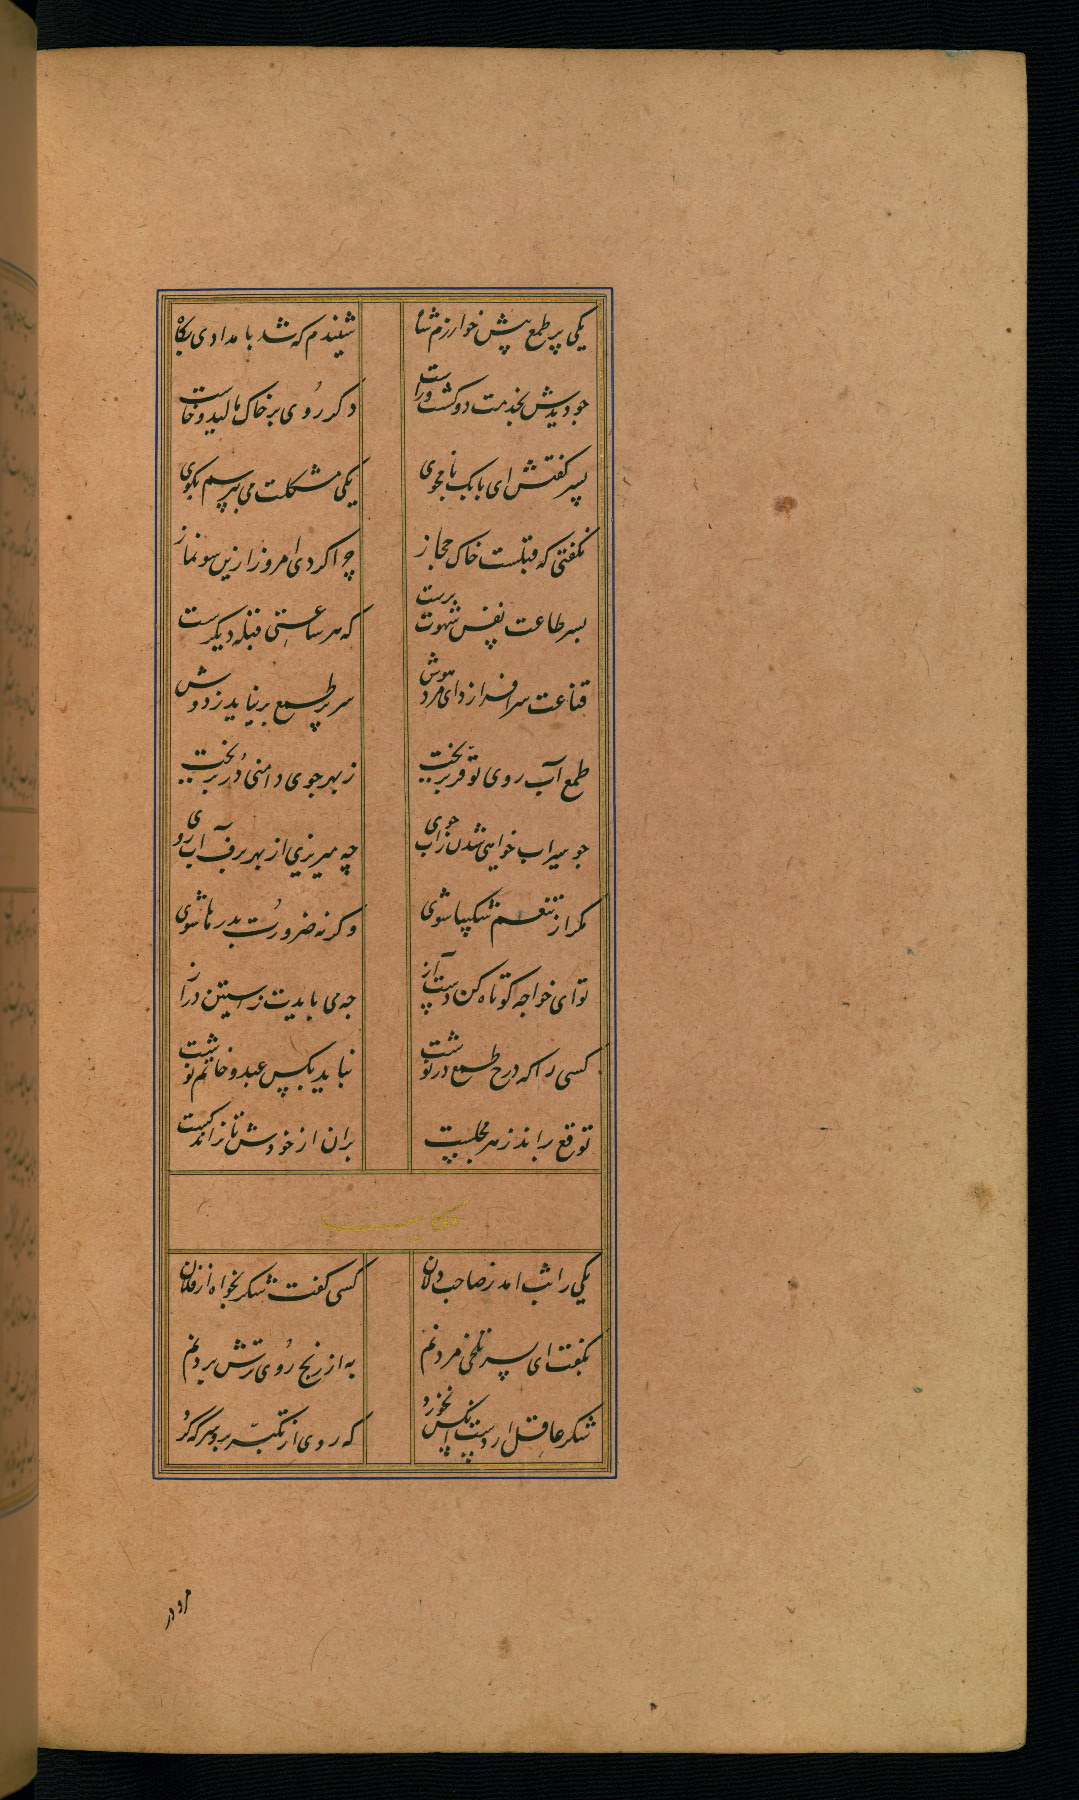 یکی پر طمع پیش خوارزم شاه شنیدم که شد بامدادی پگاه
چو دیدش بخدمت دو گشت و راست دگر روی بر خاک مالید و خاست
پسر گفتش ای بابک نامجوی یکی مشکلت می بپرسم بگوی
نگفتی که قبلست خاک حجاز چرا کردی امروز ازین سو نماز
مبر طاعت نفس شهوت پرست که هر ساعتی قبله دیگرست
قناعت سرافرازد ای مرد هوش سر پر طمع بر نیاید ز دوش
طمع آب روی توقر بریخت ز بهر جوی دامنی در بریخت
چو سیراب خواهی شدن زاب جوی چه میریزی از بهر برف آب روی
مگر از تنعم شکیبا شوی وگرنه ضرورت بدرها شوی
تو ای خواجه کوتاه کن دست آز چه می بایدت ز استین دراز
کسی را که درج طمع در نوشت نباید بکس عبد و خادم نوشت
توقع براند ز هر مجلست بران از خودش تا نراند کست
حکایت
یکی را تب امد ز صاحب دلان کسی گفت شکر بخواه از فلان
بگفت ای پسر تلخی مردنم به از رنج روی ترش بردنم
شکر عاقل از دست انکس نخورد که روی از تکبر برو سرکه کرد
مرو در